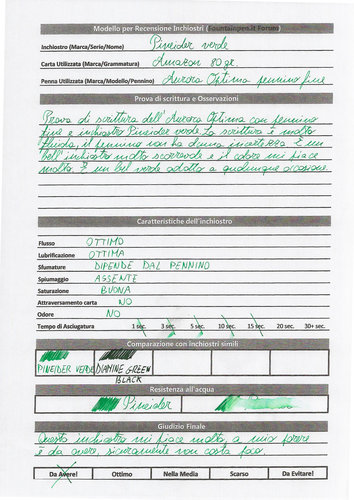 Modello per Recensione Inchiostri (Fountainpen.it Forum)
Inchiostro (Marca/Serie/Nome) Pineider verde
Carta Utilizzata (Marca/Grammatura) Amazon 80 gr.
Penna Utilizzata (Marca/Modello/Pennino) Aurora Optima pennino fine
Prova di scrittura e Osservazioni
Prova di scrittura dell'Aurora Optima con pennino
fine e inchiostro Pineider verde. La scrittura è molto
fluida, il pennino non ha alcuna incertezza. È un
bell'inchiostro molto scorrevole e il colore mi piace
molto. È un bel verde adatto a qualunque occasione.
Caratteristiche dell'inchiostro
Flusso OTTIMO
Lubrificazione OTTIMA
Sfumature DIPENDE DAL PENNINO
Spiumaggio ASSENTE
Saturazione BUONA
Attraversamento carta NO
Odore NO
Tempo di Asciugatura 1 sec. 3 sec. 5 sec. 10 sec. 15 sec. 20 sec. 30+ sec.
Comparazione con inchiostri simili
PINEIDER VERDE DIAMINE GREEN
BLACK
Resistenza all'acqua
Pineider Pineider
Giudizio Finale
Questo inchiostro mi piace molto, a mio parere
è da avere, sicuramente non costa poco.
Da Avere! Ottimo Nella Media Scarso Da Evitare!